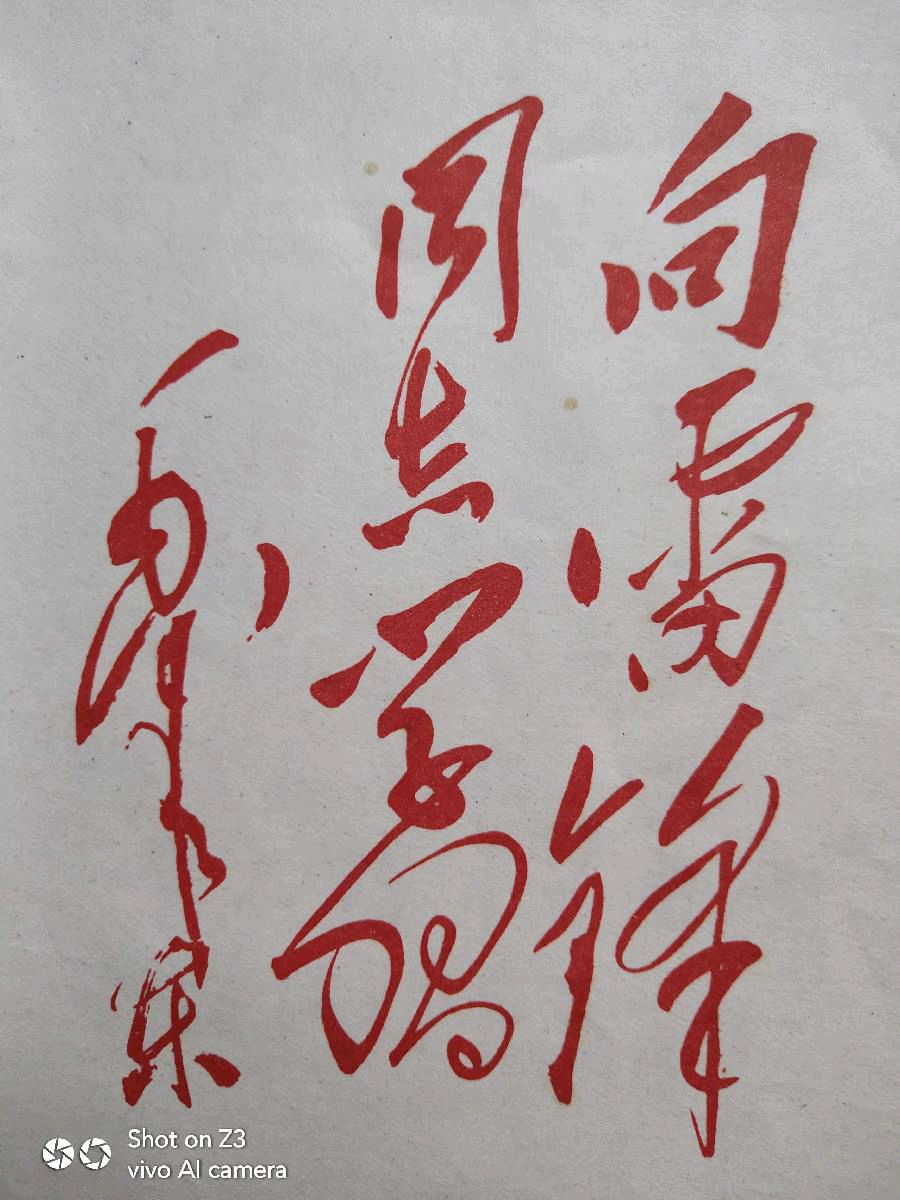 向雷锋
同志学习
毛泽东
Shot on Z3
vivo AI camera